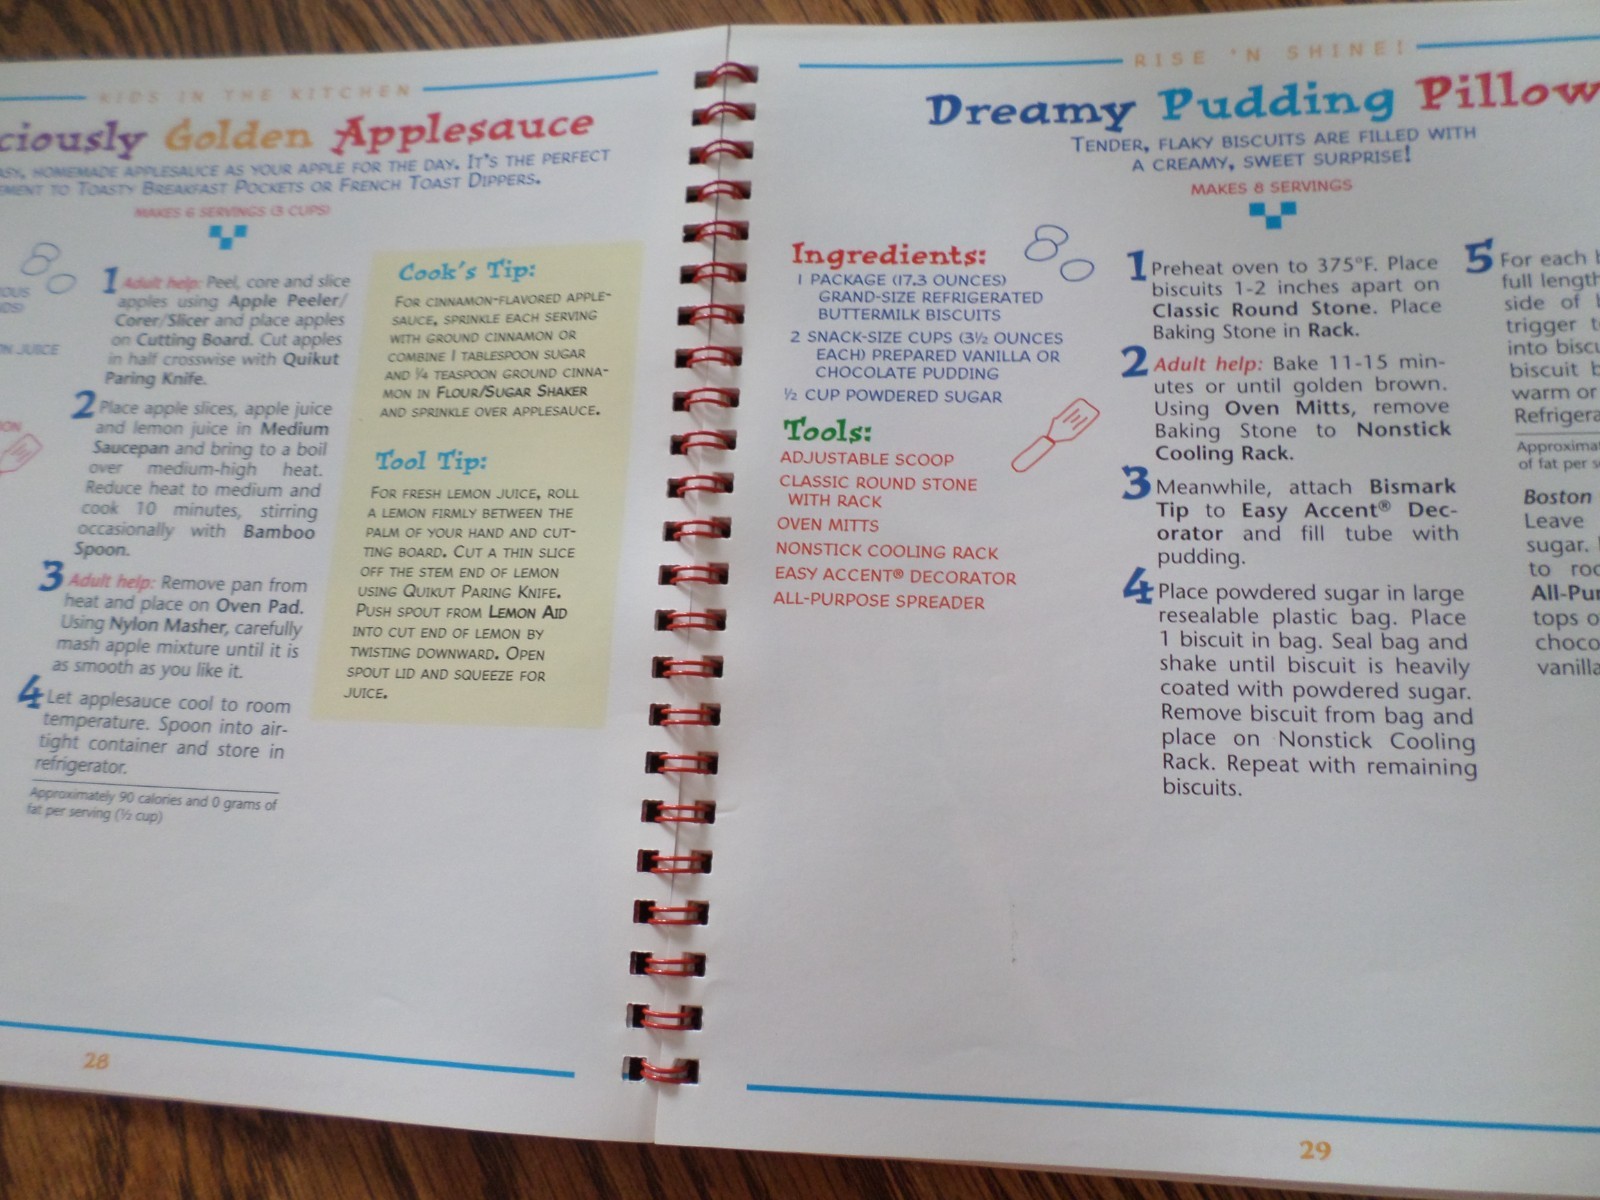 KIDS IN THE KITCHEN
Golden Applesauce
HOMEMADE APPLESAUCE AS YOUR APPLE FOR THE DAY. IT'S THE PERFECT
TO TOASTY BREAKFAST POCKETS OR FRENCH TOAST DIPPERS.
MAKES 6 SERVINGS (3 CUPS)
JUICE
1 Adult help: Peel, core and slice
apples using Apple Peeler/
Corer/Slicer and place apples
on Cutting Board. Cut apples
in half crosswise with Quikut
Paring Knife.
2 Place apple slices, apple juice
and lemon juice in Medium
Saucepan and bring to a boil
over medium-high heat.
Reduce heat to medium and
cook 10 minutes, stirring
occasionally with Bamboo
Spoon.
3 Adult help: Remove pan from
heat and place on Oven Pad.
Using Nylon Masher, carefully
mash apple mixture until it is
as smooth as you like it.
4 Let applesauce cool to room
temperature. Spoon into air-
tight container and store in
refrigerator.
Approximately 90 calories and 0 grams of
fat per serving (½ cup)
Cook's Tip:
FOR CINNAMON-FLAVORED APPLE-
SAUCE, SPRINKLE EACH SERVING
WITH GROUND CINNAMON OR
COMBINE 1 TABLESPOON SUGAR
AND ¼ TEASPOON GROUND CINNA-
MON IN FLOUR/SUGAR SHAKER
AND SPRINKLE OVER APPLESAUCE.
Tool Tip:
FOR FRESH LEMON JUICE, ROLL
A LEMON FIRMLY BETWEEN THE
PALM OF YOUR HAND AND CUT-
TING BOARD. CUT A THIN SLICE
OFF THE STEM END OF LEMON
USING QUIKUT PARING KNIFE.
PUSH SPOUT FROM LEMON AID
INTO CUT END OF LEMON BY
TWISTING DOWNWARD. OPEN
SPOUT LID AND SQUEEZE FOR
JUICE.
28
RISE 'N SHINE!
Dreamy Pudding Pillow
TENDER, FLAKY BISCUITS ARE FILLED WITH
A CREAMY, SWEET SURPRISE!
MAKES 8 SERVINGS
Ingredients:
1 PACKAGE (17.3 OUNCES)
GRAND-SIZE REFRIGERATED
BUTTERMILK BISCUITS
2 SNACK-SIZE CUPS (3½ OUNCES
EACH) PREPARED VANILLA OR
CHOCOLATE PUDDING
½ CUP POWDERED SUGAR
Tools:
ADJUSTABLE SCOOP
CLASSIC ROUND STONE
WITH RACK
OVEN MITTS
NONSTICK COOLING RACK
EASY ACCENT® DECORATOR
ALL-PURPOSE SPREADER
1 Preheat oven to 375°F. Place
biscuits 1-2 inches apart on
Classic Round Stone. Place
Baking Stone in Rack.
2 Adult help: Bake 11-15 min-
utes or until golden brown.
Using Oven Mitts, remove
Baking Stone to Nonstick
Cooling Rack.
3 Meanwhile, attach Bismark
Tip to Easy Accent® Dec-
orator and fill tube with
pudding.
4 Place powdered sugar in large
resealable plastic bag. Place
1 biscuit in bag. Seal bag and
shake until biscuit is heavily
coated with powdered sugar.
Remove biscuit from bag and
place on Nonstick Cooling
Rack. Repeat with remaining
biscuits.
5 For each
full length
side of
trigger
into
biscuit
warm or
of fat per
Boston
Leave
sugar.
to
tops
29